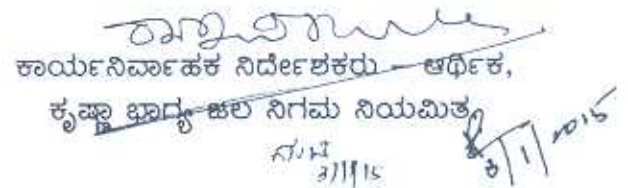 ಕಾರ್ಯನಿರ್ವಾಹಕ ನಿರ್ದೇಶಕರು – ಆರ್ಥಿಕ,
ಕೃಷ್ಣಾ ಭಾಗ್ಯ ಜಲ ನಿಗಮ ನಿಯಮಿತ
8/1/2015